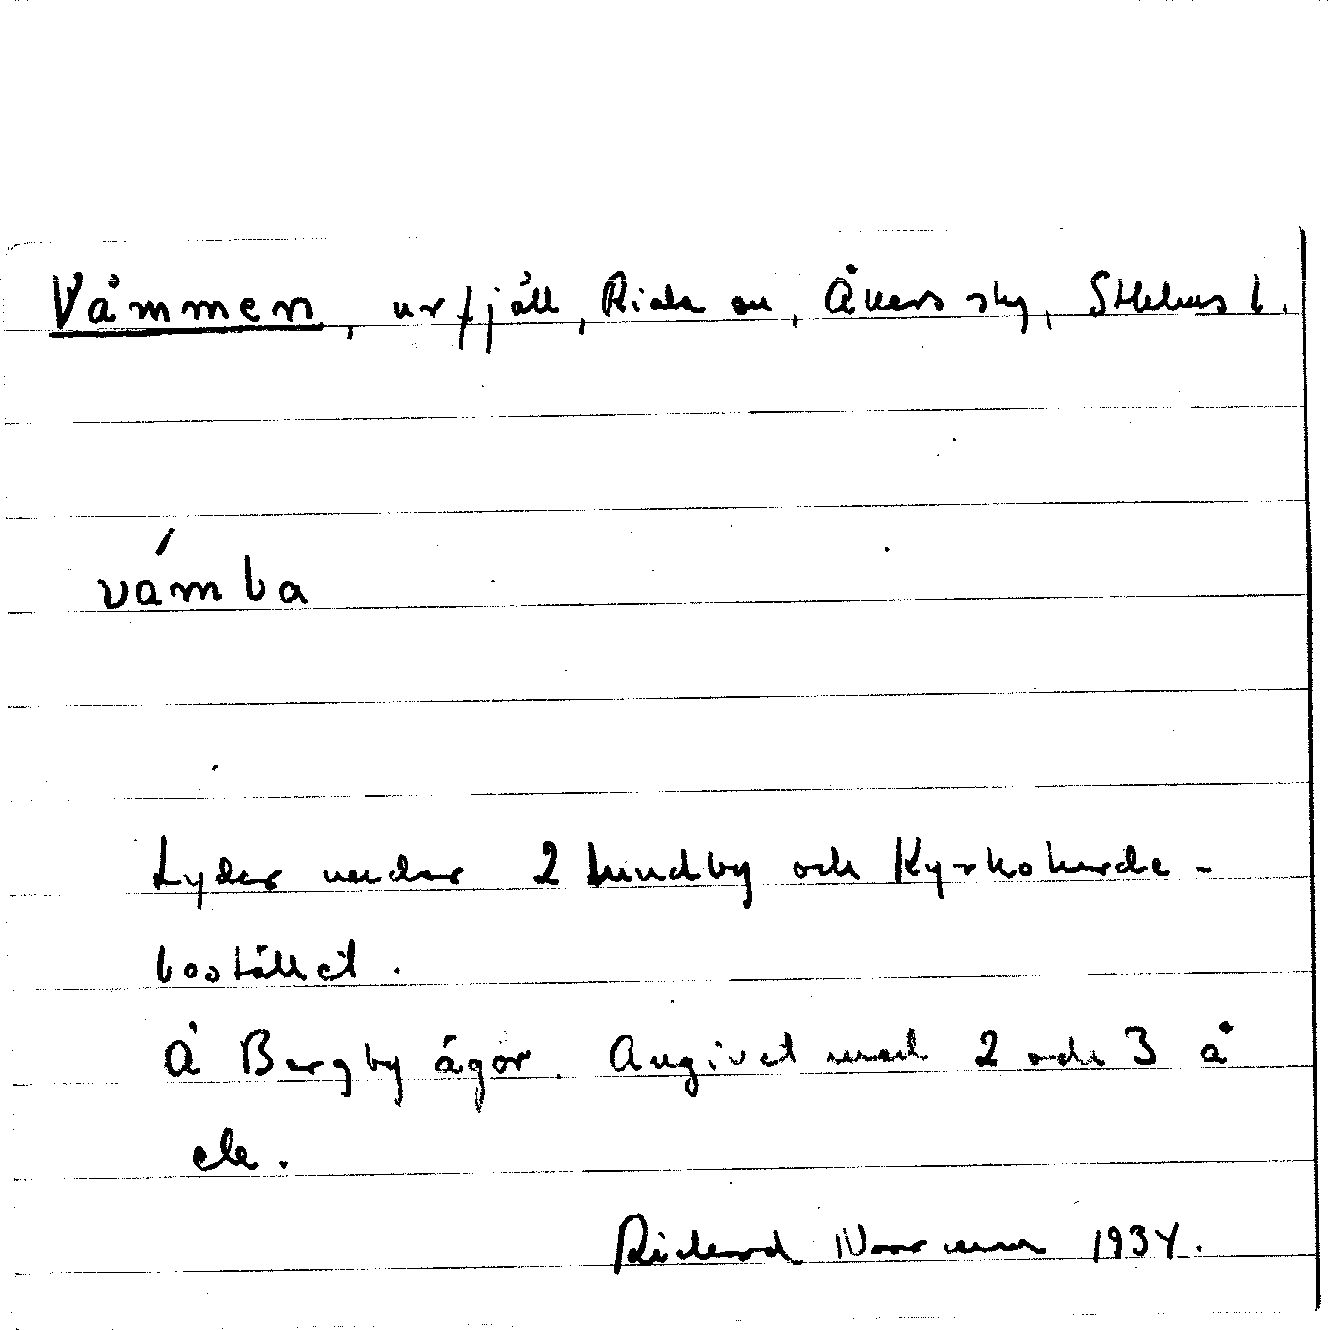 Våmmen, urfjäll, Riala sn, Åkers sky, Sthlms l.
våmba
Lyder under 2 Lundby och Kyrkoherde-
bostället.
Å Bergby ägor. Angivet med 2 och 3 å
ek.
Rickard Norrman 1934.